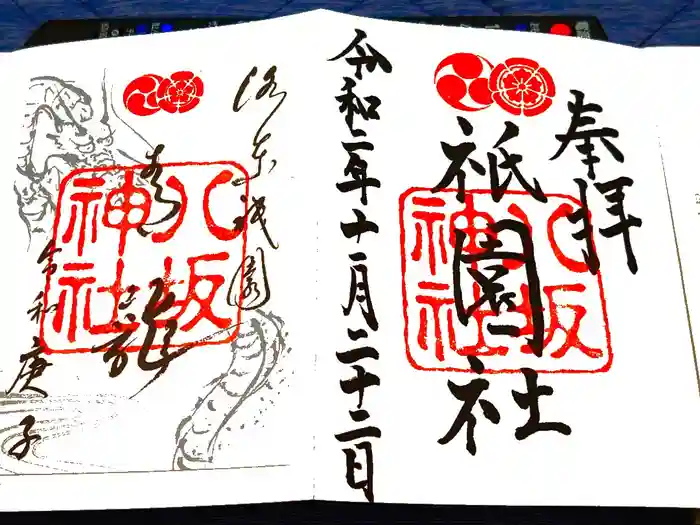 奉拝
祇園社
八坂
神社
令和二年十一月二十二日
洛東祇園
青龍
八坂
神社
令和庚子